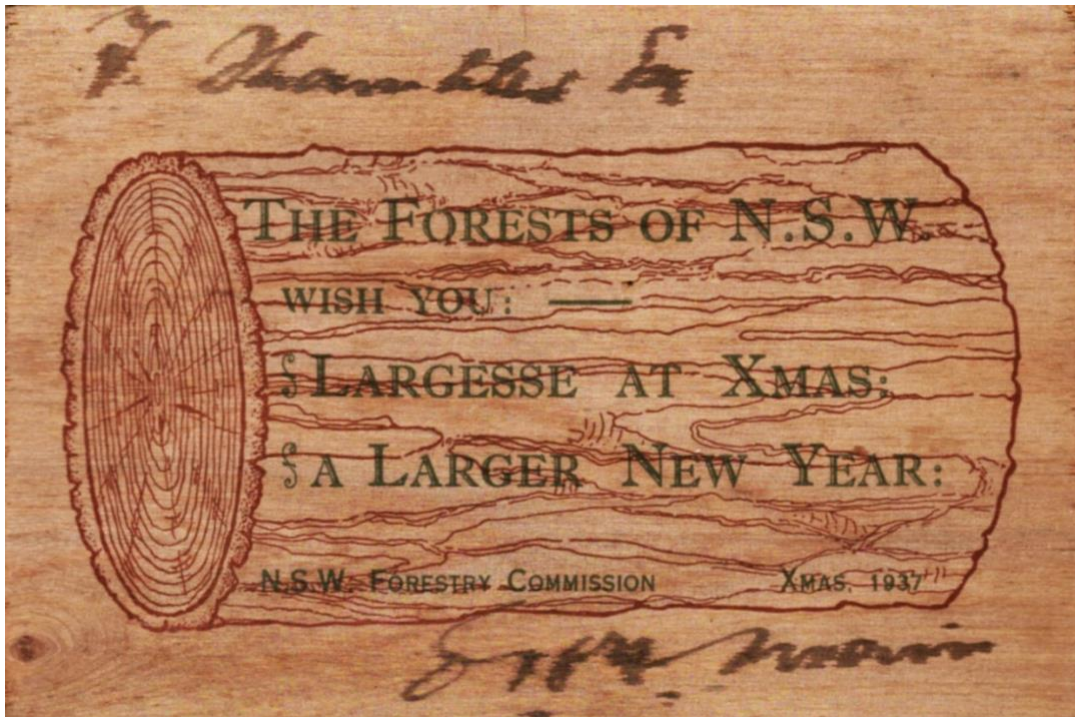 THE FORESTS OF N.S.W.
WISH YOU: —
LARGESSE AT XMAS:
A LARGER NEW YEAR:
N.S.W. FORESTRY COMMISSION XMAS, 1937